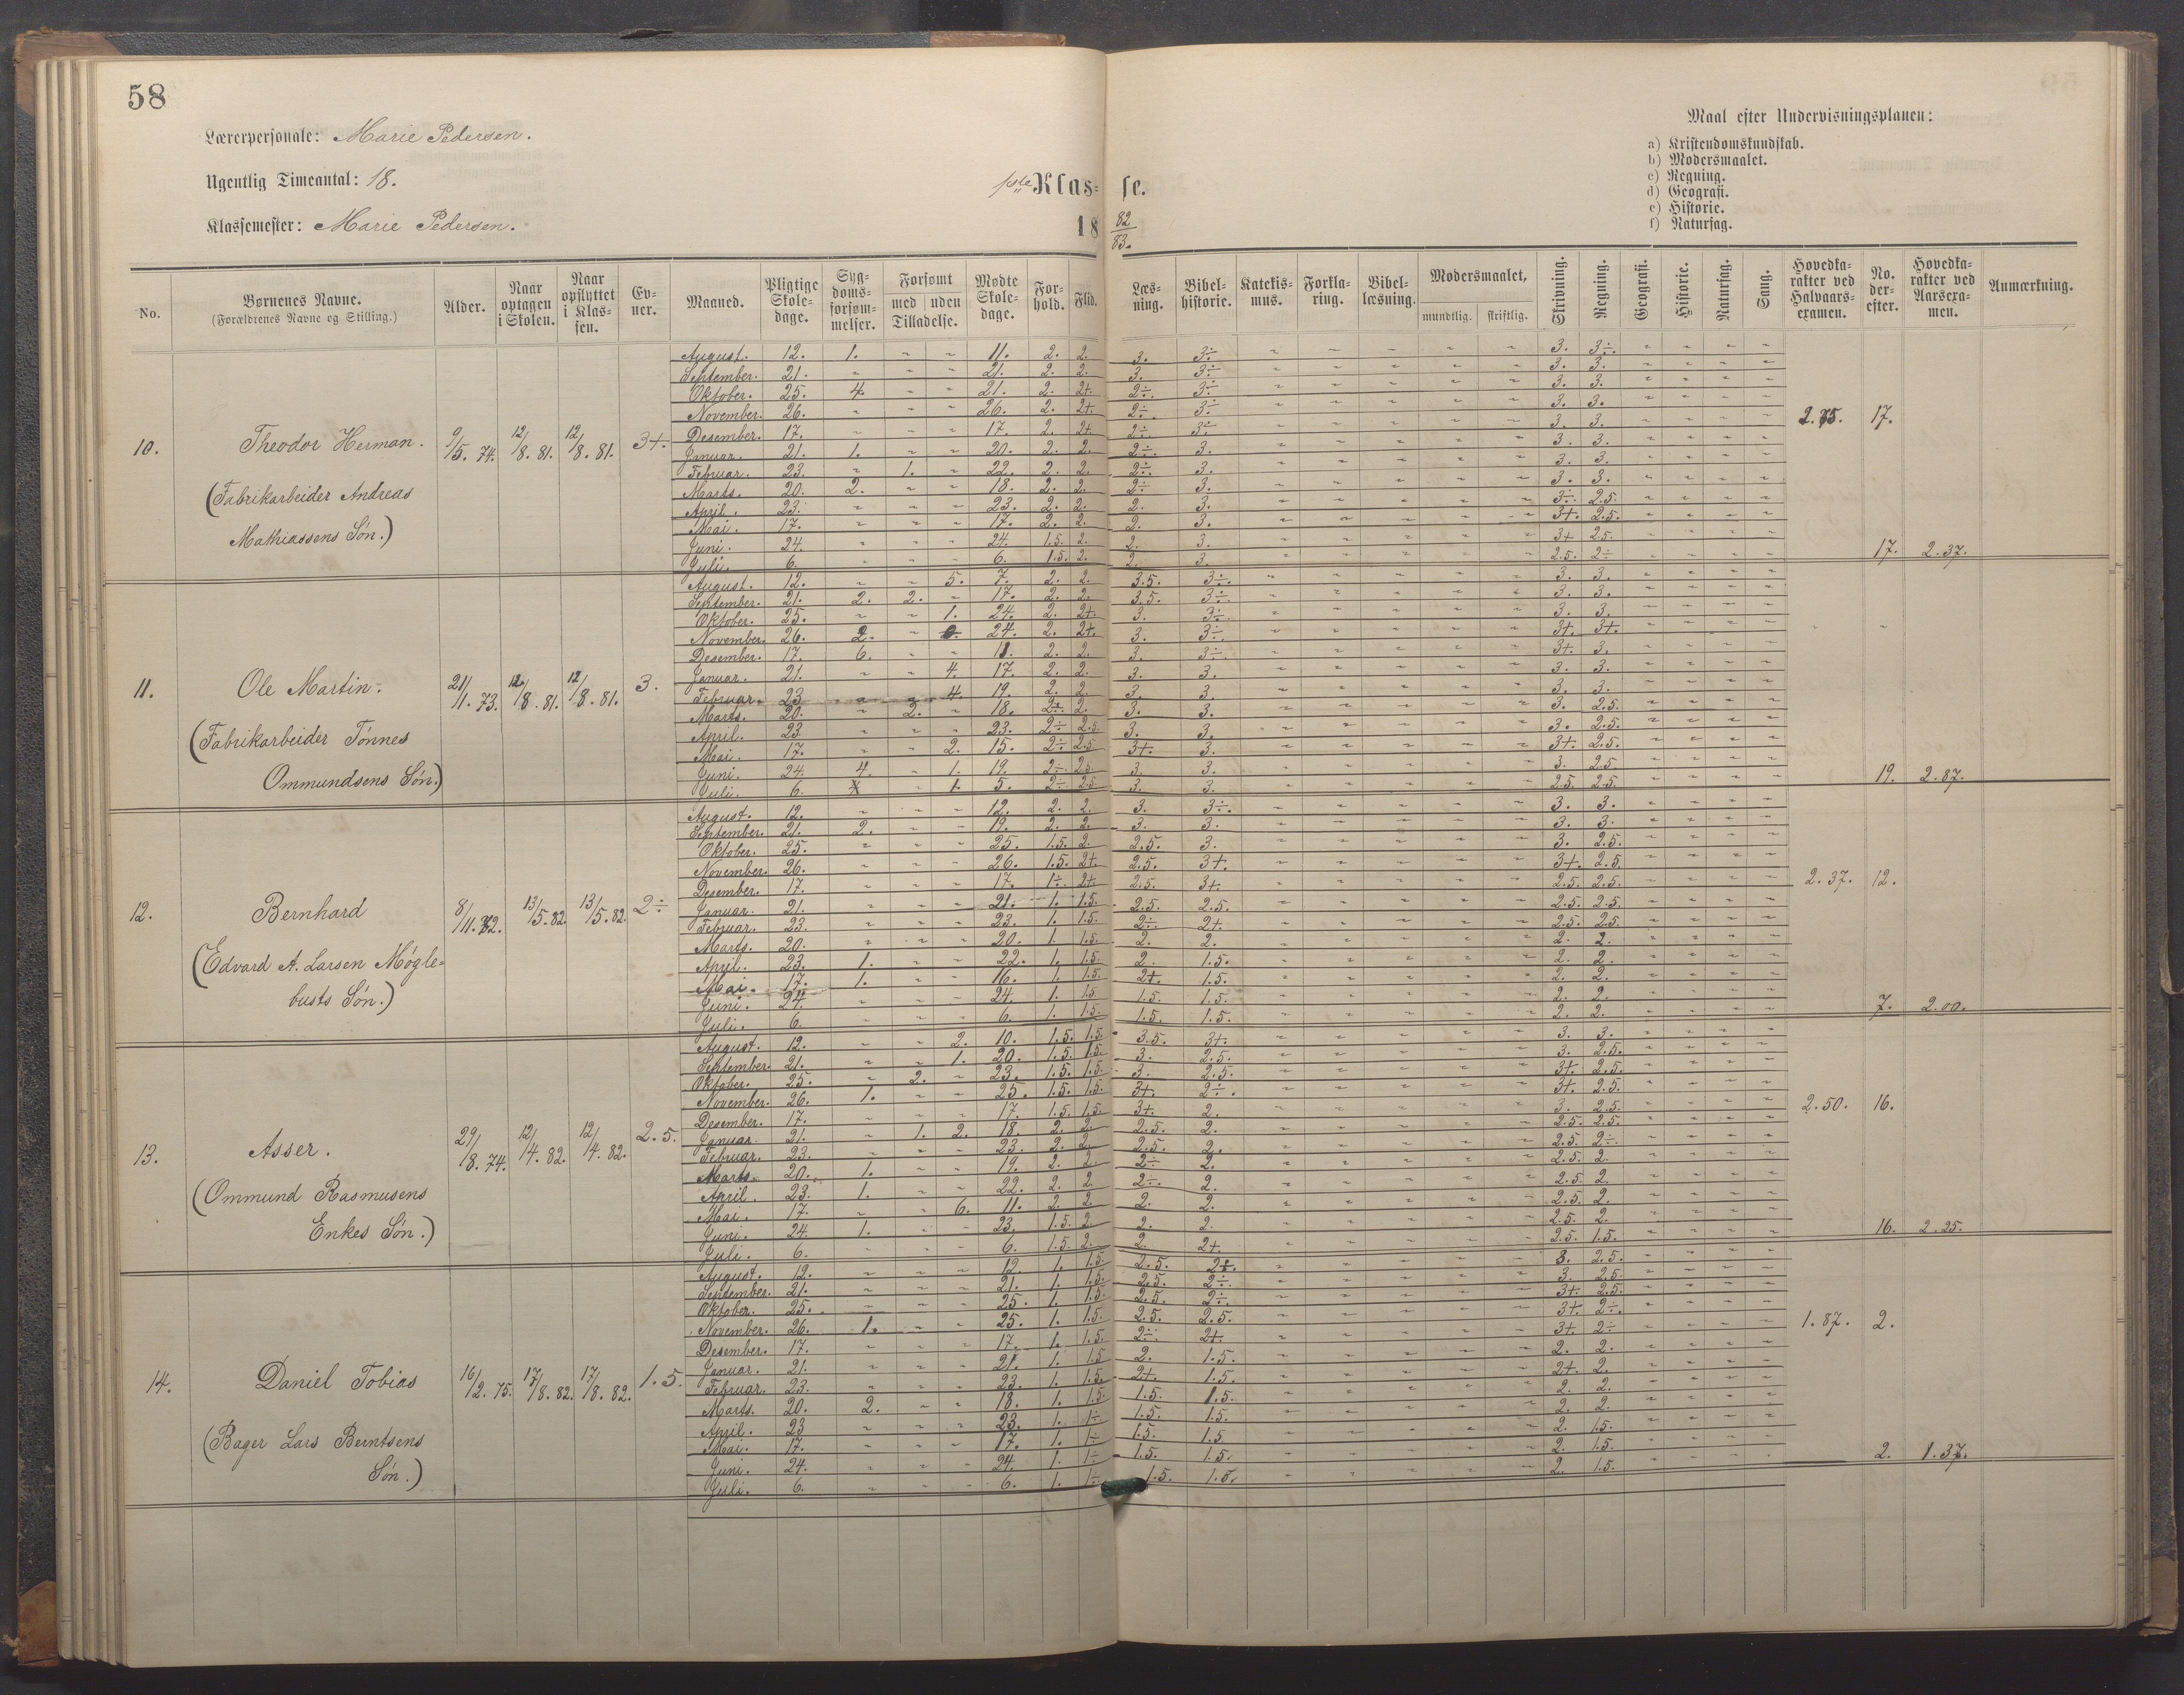 58
Lærerpersonale: Marie Pedersen.
Ugentlig Timeantal: 18.
Klassemester: Marie Pedersen.
1ste Klasse.
18 82/83.
Maal efter Undervisningsplanen:
a) Kristendomskundskab.
b) Modersmaalet.
c) Regning.
d) Geografi.
e) Historie.
f) Naturfag.
No. | Børnenes Navne. (Forældrenes Navne og Stilling.) | Alder. | Naar optagen i Skolen. | Naar opflyttet i Klassen. | Evner. | Maaned. | Pligtige Skoledage. | Sygdomsforsømmelser. | Forsømt med / uden Tilladelse. | Mødte Skoledage. | Forhold. | Flid. | Læsning. | Bibelhistorie. | Katekismus. | Forklaring. | Bibellæsning. | Modersmaalet, mundtlig. skriftlig. | Skrivning. | Regning. | Geografi. | Historie. | Naturfag. | Sang. | Hovedkarakter ved Halvaarsexamen. | No. derefter. | Hovedkarakter ved Aarsexamen. | Anmærkning.
10. Theodor Herman. 9/5. 74. 12/8. 81. 12/8. 81. 3+.
(Fabrikarbeider Andreas
Mathiassens Søn.)
August. 12. 1. " " 11. 2. 2. 3. 3÷. " " " " " 3. 3÷. " " " "
September. 21. " " " 21. 2. 2. 3. 3÷. " " " " " 3. 3. " " " "
Oktober. 25. 4. " " 21. 2. 2+. 2÷. 3÷. " " " " " 3. 3. " " " "
November. 26. " " " 26. 2. 2+. 2÷. 3÷. " " " " " 3. 3. " " " "
Desember. 17. " " " 17. 2. 2+. 2÷. 3÷. " " " " " 3. 3. " " " " 2.75. 17.
Januar. 21. 1. " " 20. 2. 2. 2÷. 3. " " " " " 3. 3. " " " "
Februar. 23. " 1. " 22. 2. 2. 2÷. 3. " " " " " 3. 3. " " " "
Marts. 20. 2. " " 18. 2. 2. 2÷. 3. " " " " " 3. 3. " " " "
April. 23. " " " 23. 2. 2. 2. 3. " " " " " 3÷. 2.5. " " " "
Mai. 17. " " " 17. 2. 2. 2. 3. " " " " " 3+. 2.5. " " " "
Juni. 24. " " " 24. 1.5. 2. 2. 3. " " " " " 3+ 2.5. " " " "
Juli. 6. " " " 6. 1.5. 2. 2. 3. " " " " " 2.5. 2÷ " " " " 17. 2.37.
11. Ole Martin. 21/1. 73. 12/8. 81. 12/8. 81. 3.
(Fabrikarbeider Tønnes
Ommundsens Søn.)
August. 12. " " 5. 7. 2. 2. 3.5. 3÷. " " " " " 3. 3. " " " "
September. 21. 2. 2. " 17. 2. 2. 3.5. 3÷. " " " " " 3. 3. " " " "
Oktober. 25. " " 1. 24. 2. 2+. 3. 3÷. " " " " " 3. 3. " " " "
November. 26. 2. " 24. 2. 2+. 3. 3÷. " " " " " 3+. 3+. " " " "
Desember. 17. 6. " " 11. 2. 2. 3. 3÷. " " " " " 3+. 3. " " " "
Januar. 21. " " 4. 17. 2. 2. 3. 3. " " " " " 3. 3. " " " "
Februar. 23. " " 4. 19. 2. 2. 3. 3. " " " " " 3. 3. " " " "
Marts. 20. " 2. " 18. 2÷ 2. 3. 3. " " " " " 3. 2.5. " " " "
April. 23. " " " 23. 2÷ 2.5. 3. 3. " " " " " 3. 2.5. " " " "
Mai. 17. " " 2. 15. 2÷ 2.5. 3+. 3. " " " " " 3+. 2.5. " " " "
Juni. 24. 4. " 1. 19. 2÷. 2.5. 3. 3. " " " " " 3. 2.5. " " " "
Juli. 6. " 1. 5. 2÷ 2.5. 3. 3. " " " " " 2.5. 2.5. " " " " 19. 2.87.
12. Bernhard 8/11. 72. 13/5. 82. 13/5. 82. 2÷
(Edvard A. Larsen Mögle-
busts Søn.)
August. 12. " " " 12. 2. 2. 3. 3÷. " " " " " 3. 3. " " " "
September. 21. 2. " " 19. 2. 2. 3. 3. " " " " " 3. 3. " " " "
Oktober. 25. " " " 25. 1.5. 2. 2.5. 3. " " " " " 3. 2.5. " " " "
November. 26. " " " 26. 1.5. 2+. 2.5. 3+. " " " " " 3+. 2.5. " " " "
Desember. 17. " " " 17. 1÷. 2+. 2.5. 3+. " " " " " 2.5. 2.5. " " " " 2.37. 12.
Januar. 21. " " " 21. 1. 1.5. 2.5. 2.5. " " " " " 2.5. 2.5. " " " "
Februar. 23. " " " 23. 1. 1.5. 2÷. 2+. " " " " " 2.5. 2.5. " " " "
Marts. 20. " " " 20. 1. 1.5. 2. 2. " " " " " 2. 2. " " " "
April. 23. 1. " " 22. 1. 1.5. 2. 1.5. " " " " " 2. 2. " " " "
Mai. 17. 1. " " 16. 1. 1.5. 2+. 1.5. " " " " " 2. 2. " " " "
Juni. 24. " " " 24. 1. 1.5. 1.5. 1.5. " " " " " 2. 2. " " " "
Juli. 6. " " " 6. 1. 1.5. 1.5. 1.5. " " " " " 2. 2. " " " " 7. 2.00.
13. Asser. 29/8. 74. 12/4. 82. 12/4. 82. 2.5.
(Ommund Rasmusens
Enkes Søn.)
August. 12. " " 2. 10. 1.5. 1.5. 3.5. 3+. " " " " " 3. 3. " " " "
September. 21. " " 1. 20. 1.5. 1.5. 3. 2.5. " " " " " 3. 2.5. " " " "
Oktober. 25. " 2. " 23. 1.5. 1.5. 3. 2.5. " " " " " 3+. 2.5. " " " "
November. 26. 1. " " 25. 1.5. 1.5. 3+. 2÷. " " " " " 3+. 2.5. " " " "
Desember. 17. " " " 17. 1.5. 1.5. 3+. 2. " " " " " 3. 2.5. " " " " 2.50. 16.
Januar. 21. " 1. 2. 18. 2. 2. 2.5. 2. " " " " " 2.5. 2.5. " " " "
Februar. 23. " " " 23. 2. 2. 2.5. 2. " " " " " 2.5. 2÷. " " " "
Marts. 20. 1. " " 19. 2. 2. 2÷ 2. " " " " " 2.5. 2. " " " "
April. 23. 1. " " 22. 2. 2. 2÷. 2. " " " " " 2.5. 2. " " " "
Mai. 17. " " 6. 11. 2. 2. 2. 2. " " " " " 2.5. 2. " " " "
Juni. 24. 1. " " 23. 1.5. 2. 2. 2. " " " " " 2.5. 2. " " " "
Juli. 6. " " " 6. 1.5. 2. 2. 2+. " " " " " 2.5. 1.5. " " " " 16. 2.25.
14. Daniel Tobias 16/2. 75. 17/8. 82. 17/8. 82. 1.5.
(Bager Lars Berntsens
Søn.)
August. 12. " " " 12. 1. 1.5. 2.5. 2+. " " " " " 3. 2.5. " " " "
September. 21. " " " 21. 1. 1.5. 2.5. 2÷. " " " " " 3. 2.5. " " " "
Oktober. 25. " " " 25. 1. 1.5. 2.5. 2÷. " " " " " 3+. 2.5. " " " "
November. 26. 1. " " 25. 1. 1.5. 2.5. 2.5. " " " " " 3+. 2÷. " " " "
Desember. 17. " " " 17. 1. 1.5. 2÷. 2+. " " " " " 3+. 2÷ " " " " 1.87. 2.
Januar. 21. " " " 21. 1. 1.5 2. 1.5. " " " " " 2. 2. " " " "
Februar. 23. " " " 23. 1. 1.5. 2+. 1.5. " " " " " 2+. 2. " " " "
Marts. 20. 2. " " 18. 1. 1.5. 1.5. 1.5. " " " " " 2. 2. " " " "
April. 23 " " " 23. 1. 1÷ 1.5. 1.5. " " " " " 2. 2. " " " "
Mai. 17. " " " 17. 1. 1÷ 1.5. 1.5 " " " " " 2. 1.5. " " " "
Juni. 24. " " " 24. 1. 1÷ 1.5. 1.5. " " " " " 2. 1.5. " " " "
Juli. 6. " " " 6. 1. 1÷. 1.5. 1.5. " " " " " 2. 1.5. " " " " 2. 1.37.